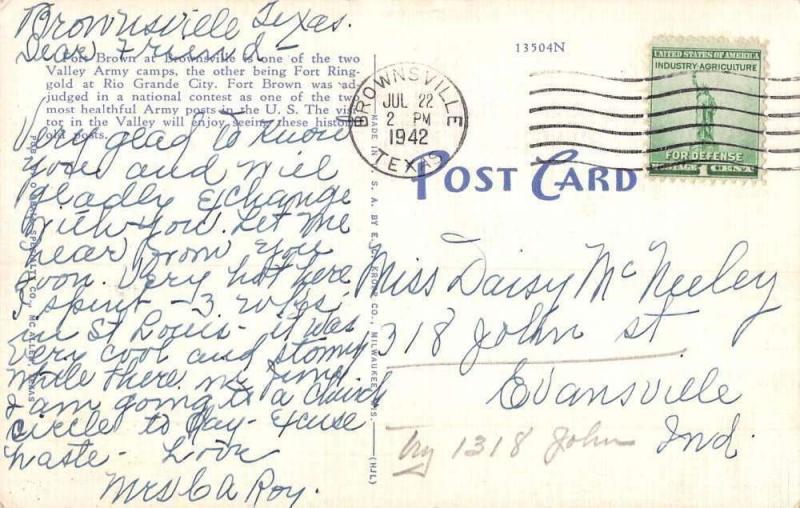 Brownsville Texas.
Dear Friend -
Fort Brown at Brownsville is one of the two
Valley Army camps, the other being Fort Ring-
gold at Rio Grande City. Fort Brown was ad-
judged in a national contest as one of the two
most healthful Army posts in the U. S. The visi-
tor in the Valley will enjoy seeing these historic
old posts.
Very glad to know
you and will
gladly exchange
with you. Let me
hear from you
soon. Very hot here
I spent - 3 wks,
in St Louis - it was
very cool and stormy
while there in June
I am going to a church
circle to day - Excuse
haste - Love
Mrs C A Roy.
MADE IN U. S. A. BY E. C. KROPP CO., MILWAUKEE, WIS.
(HJL)
SPECIALTY CO., MC ALLEN, TEXAS
13504N
BROWNSVILLE
JUL 22
2 PM
1942
TEXAS
UNITED STATES OF AMERICA
INDUSTRY·AGRICULTURE
FOR DEFENSE
POSTAGE 1 CENT
POST CARD
Miss Daisy McNeeley
318 John st
Evansville
Ind.
Try 1318 John